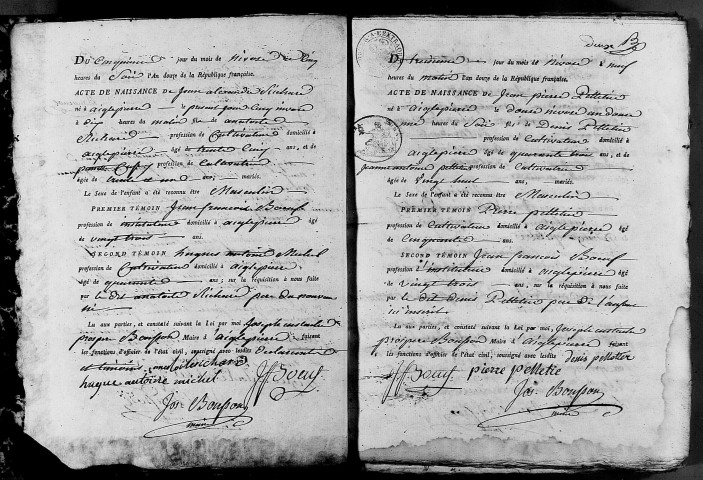 Du Cinquieme jour du mois de nivose à cinq
heures du Soir l'An douze de la République française.
ACTE DE NAISSANCE de Jean alexandre Richard
né à aiglepierre le present jour cinq nivose
à dix heures du matin fils de anatoile
Richard profession de Cultivateur domicilié à
aiglepierre âgé de trente cinq ans, et de
profession de
âgée de trente ans, mariée.
Le Sexe de l'enfant a été reconnu être Masculin
PREMIER TÉMOIN Jean francois Boeuf
profession de instituteur domicilié à aiglepierre âgé
de vingt trois ans.
SECOND TÉMOIN hugues antoine Michel
profession de Cultivateur domicilié à aiglepierre
âgé de quarante ans, sur la réquisition à nous faite
par le dit anatoile Richard pere du nouveau
né
Lu aux parties, et constaté suivant la Loi par moi Joseph constante
prosper Bousson Maire d'aiglepierre faisant
les fonctions d'officier de l'état civil, soussigné avec lesdits declarant
et témoins
hugue antoine michel JfBoeuf
Jos. Bousson
maire
douze
Du treizieme jour du mois de Nivose à neuf
heures du matin l'an douze de la République française.
ACTE DE NAISSANCE de Jean pierre Pelletier
né à Aiglepierre le douze nivose an douze
heures du Soir fils de Denis Pelletier
profession de Cultivateur domicilié à
aiglepierre âgé de quarante trois ans, et de
Jeanne antoine pelletier profession de Cultivatrice
âgée de Vingt huit ans, mariée.
Le Sexe de l'enfant a été reconnu être Masculin
PREMIER TÉMOIN Pierre pelletier
profession de Cultivateur domicilié à aiglepierre âgé
de Cinquante ans.
SECOND TÉMOIN Jean francois Boeuf
profession d'instituteur domicilié à aiglepierre âgé
de vingt trois ans, sur la réquisition à nous faite
par le dit Denis Pelletier pere de l'enfant
ici inscrit
Lu aux parties, et constaté suivant la Loi par moi, Joseph constante
prosper Bousson Maire d'aiglepierre faisant
les fonctions d'officier de l'état civil, soussigné avec lesdits denis pelletier
JfBoeuf pierre pelletie
Jos. Bousson
maire